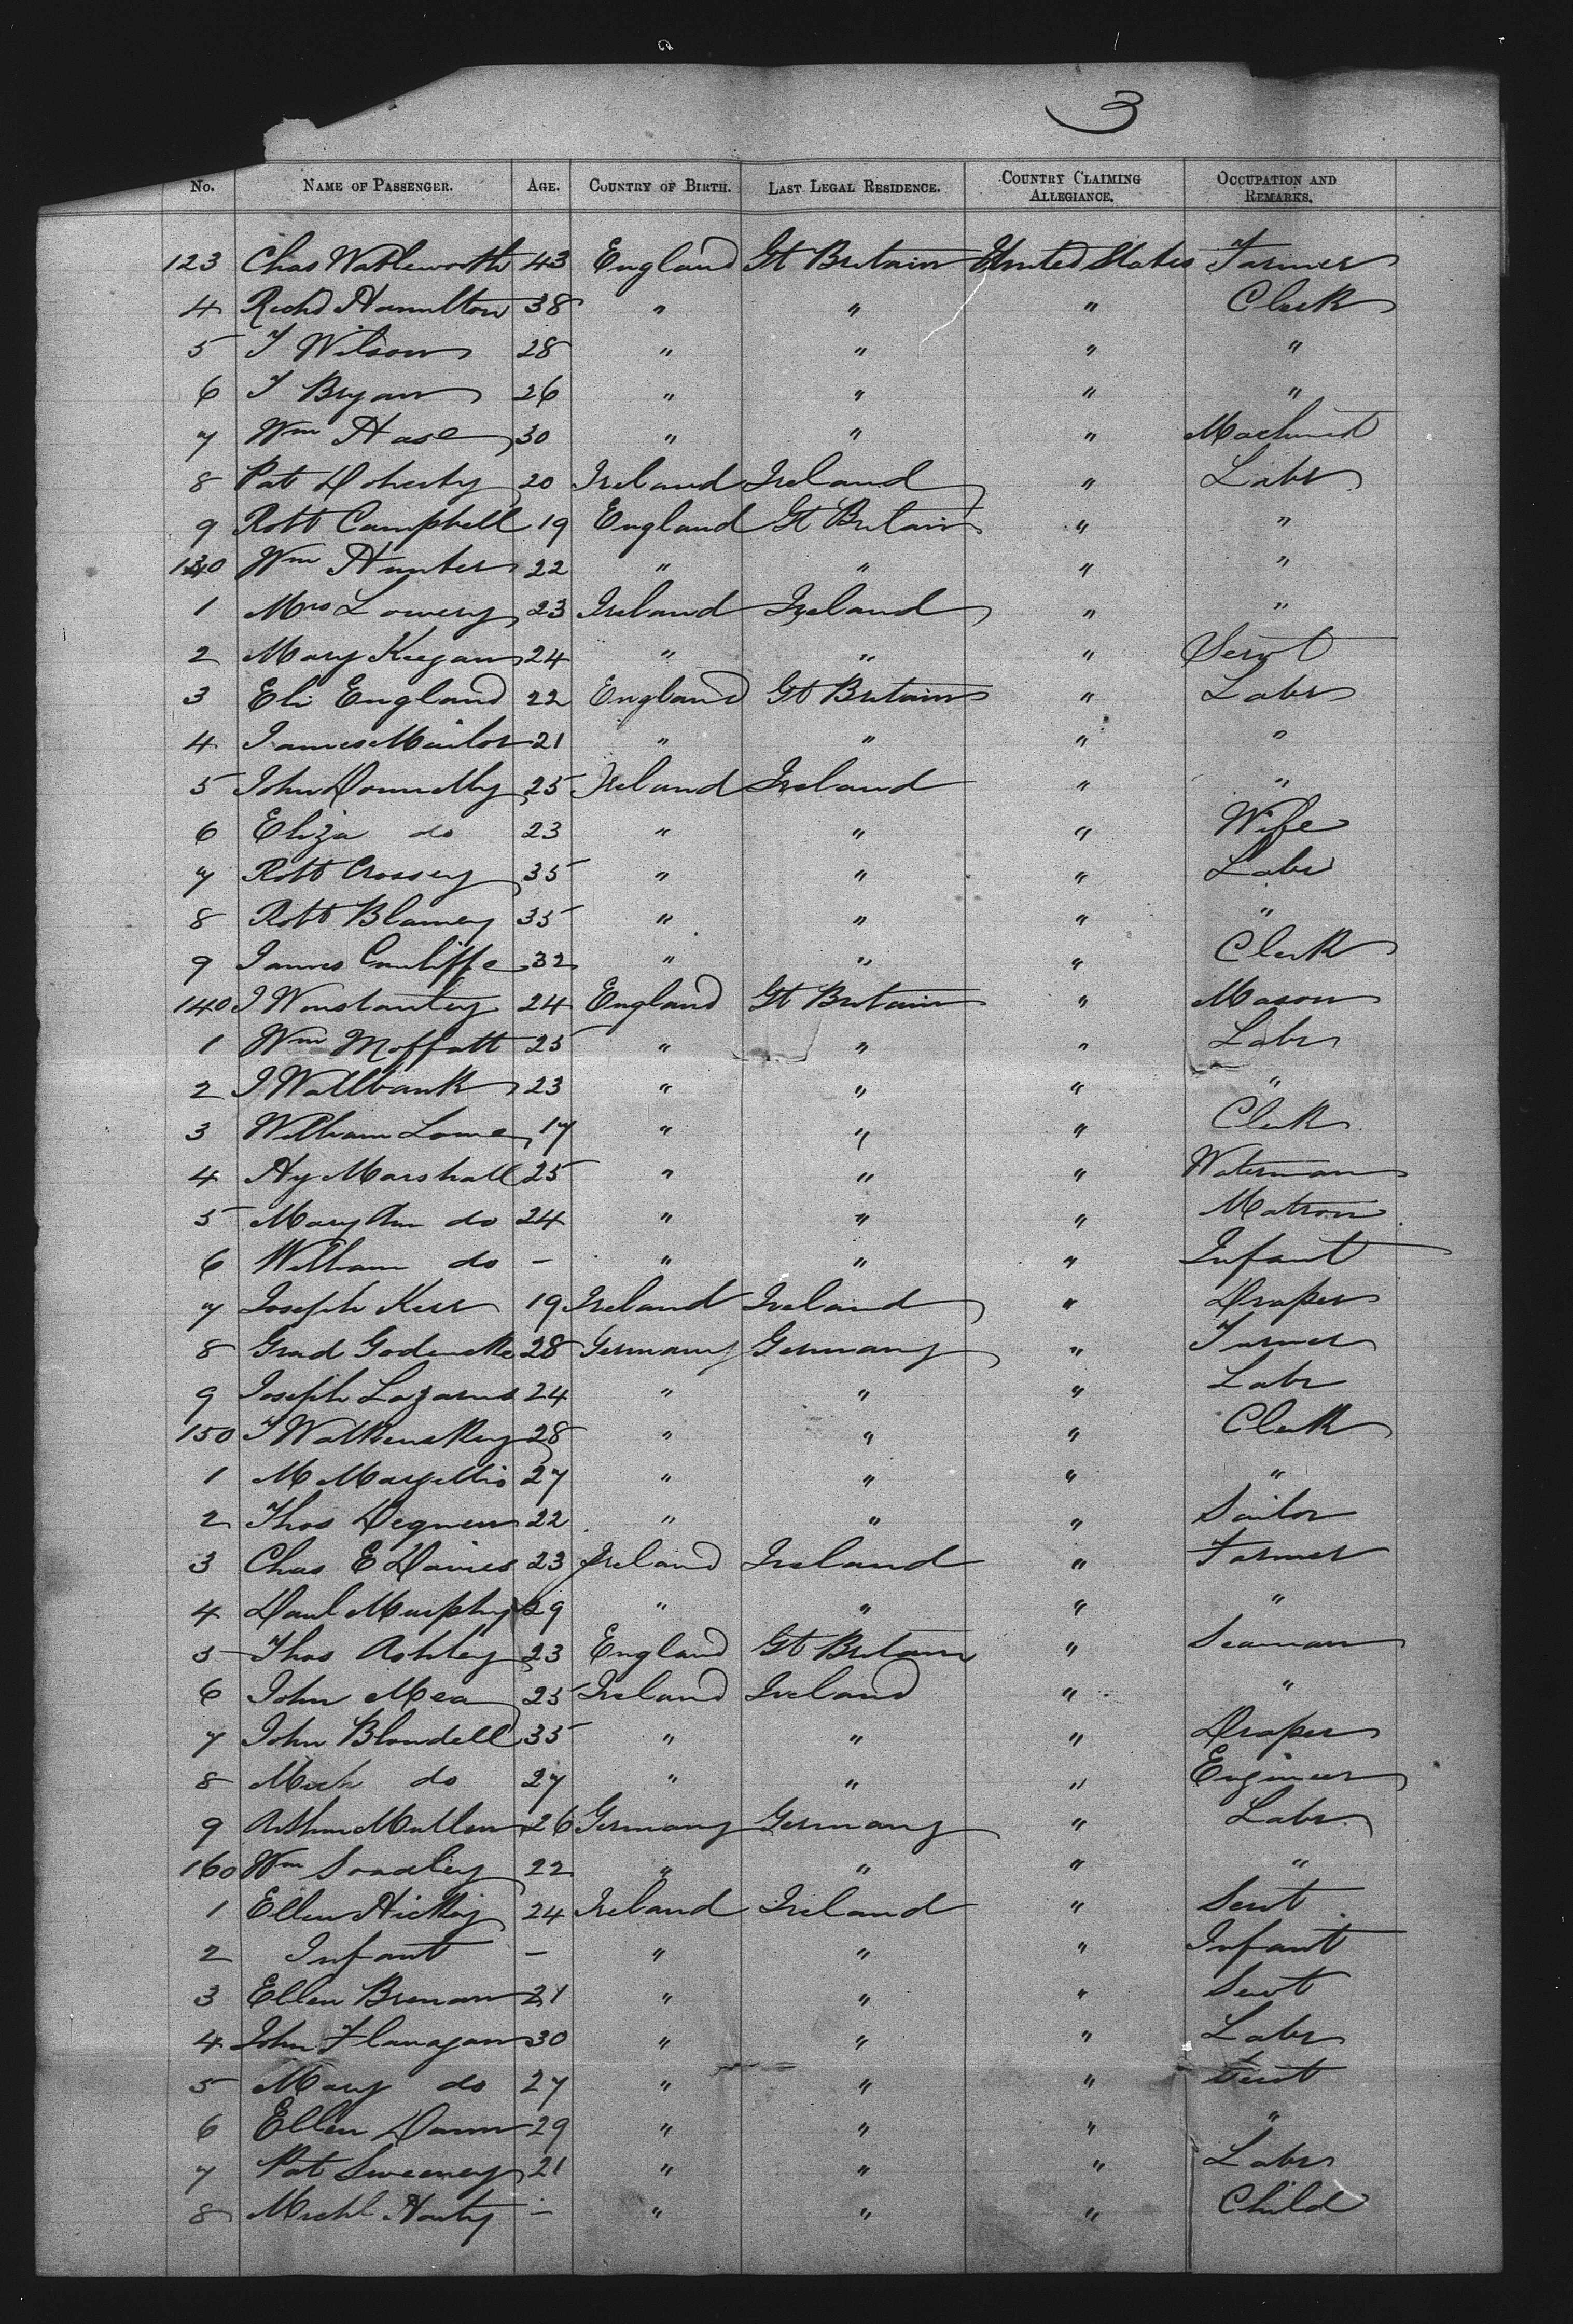 3
No. NAME OF PASSENGER. AGE. COUNTRY OF BIRTH. LAST LEGAL RESIDENCE. COUNTRY CLAIMING ALLEGIANCE. OCCUPATION AND REMARKS.
123 Chas Wableworth 43 England Gt Britain United States Farmer
4 Richd Hamilton 38 " " " Clerk
5 T Wilson 28 " " " "
6 T Bryan 26 " " " "
7 Wm Hase 30 " " " Machinist
8 Pat Doherty 20 Ireland Ireland " Labr
9 Robt Campbell 19 England Gt Britain " "
130 Wm Hunter 22 " " " "
1 Mrs Lowery 23 Ireland Ireland " "
2 Mary Keegan 24 " " " Servt
3 Eli England 22 England Gt Britain " Labr
4 James Mailor 21 " " " "
5 John Donnelly 25 Ireland Ireland " "
6 Eliza do 23 " " " Wife
7 Robt Crossey 35 " " " Labr
8 Robt Blamey 35 " " " "
9 James Cunliffe 32 " " " Clerk
140 J Winstanley 24 England Gt Britain " Mason
1 Wm Moffatt 25 " " " Labr
2 J Wallbank 23 " " " "
3 William Lowe 17 " " " Clerk
4 Hy Marshall 25 " " " Waterman
5 Mary Ann do 24 " " " Matron
6 William do - " " " Infant
7 Joseph Kerr 19 Ireland Ireland " Draper
8 28 Germany Germany " Turner
9 Joseph Lazarus 24 " " " Labr
150 28 " " " Clerk
1 M 27 " " " "
2 Thos Degnen 22 " " " Sailor
3 Chas E Davies 23 Ireland Ireland " Farmer
4 Danl Murphy 29 " " " "
5 Thos Ashley 23 England Gt Britain " Seaman
6 John Mea 25 Ireland Ireland " "
7 John Blondell 35 " " " Draper
8 Mich do 27 " " " Engineer
9 Arthur Mullen 26 Germany Germany " Labr
160 Wm 22 " " " "
1 Ellen Hickey 24 Ireland Ireland " Servt
2 Infant - " " " Infant
3 Ellen Brenan 21 " " " Servt
4 John Flanagan 30 " " " Labr
5 Mary do 27 " " " Servt
6 Ellen Dann 29 " " " "
7 Pat Sweeney 21 " " " Labr
8 Michl - " " " Child